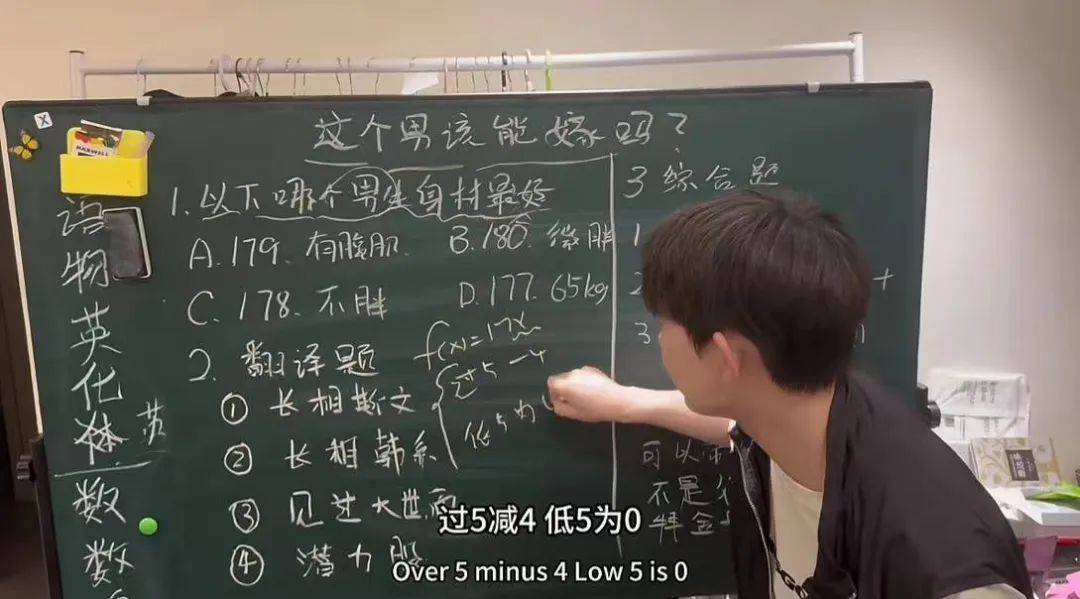 这个男孩能嫁吗?
1.以下哪个男生身材最好
A.179、有腹肌
B.180、微胖
C.178、不胖
D.177、65kg
2、翻译题
f(x)=17x
过5-4
低5为
① 长相斯文
② 长相韩系
③ 见过大世面
④ 潜力股
3综合题
1
2
+
3
可以
不是
语
物
英
化
体
英
数
数
MAXWELL
过5减4 低5为0
Over 5 minus 4 Low 5 is 0